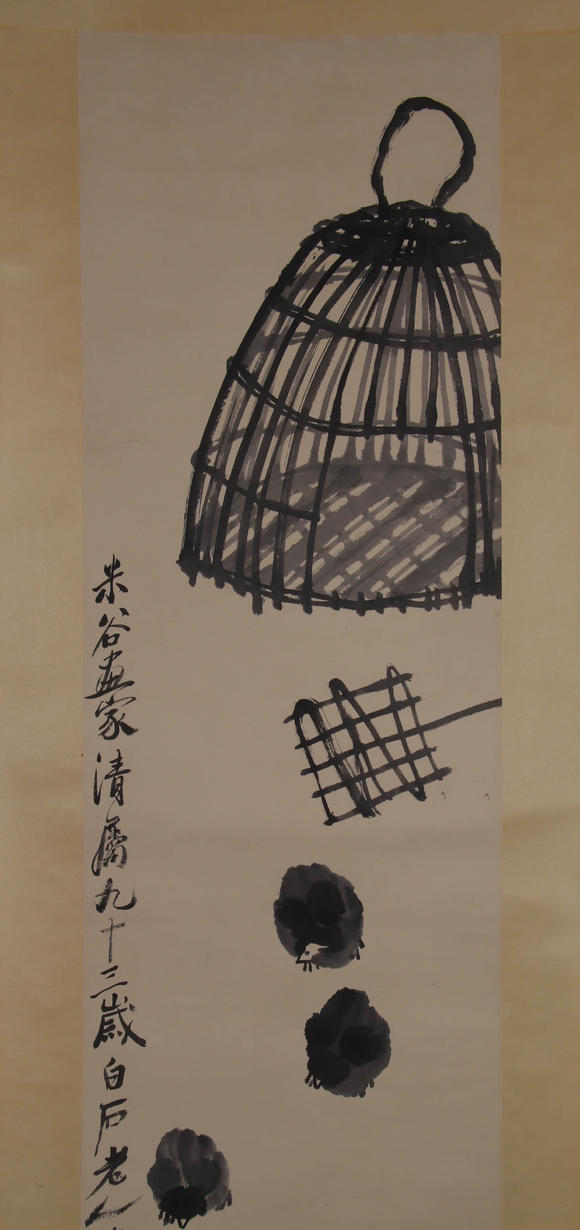 米谷画家清属九十三歲白石老人